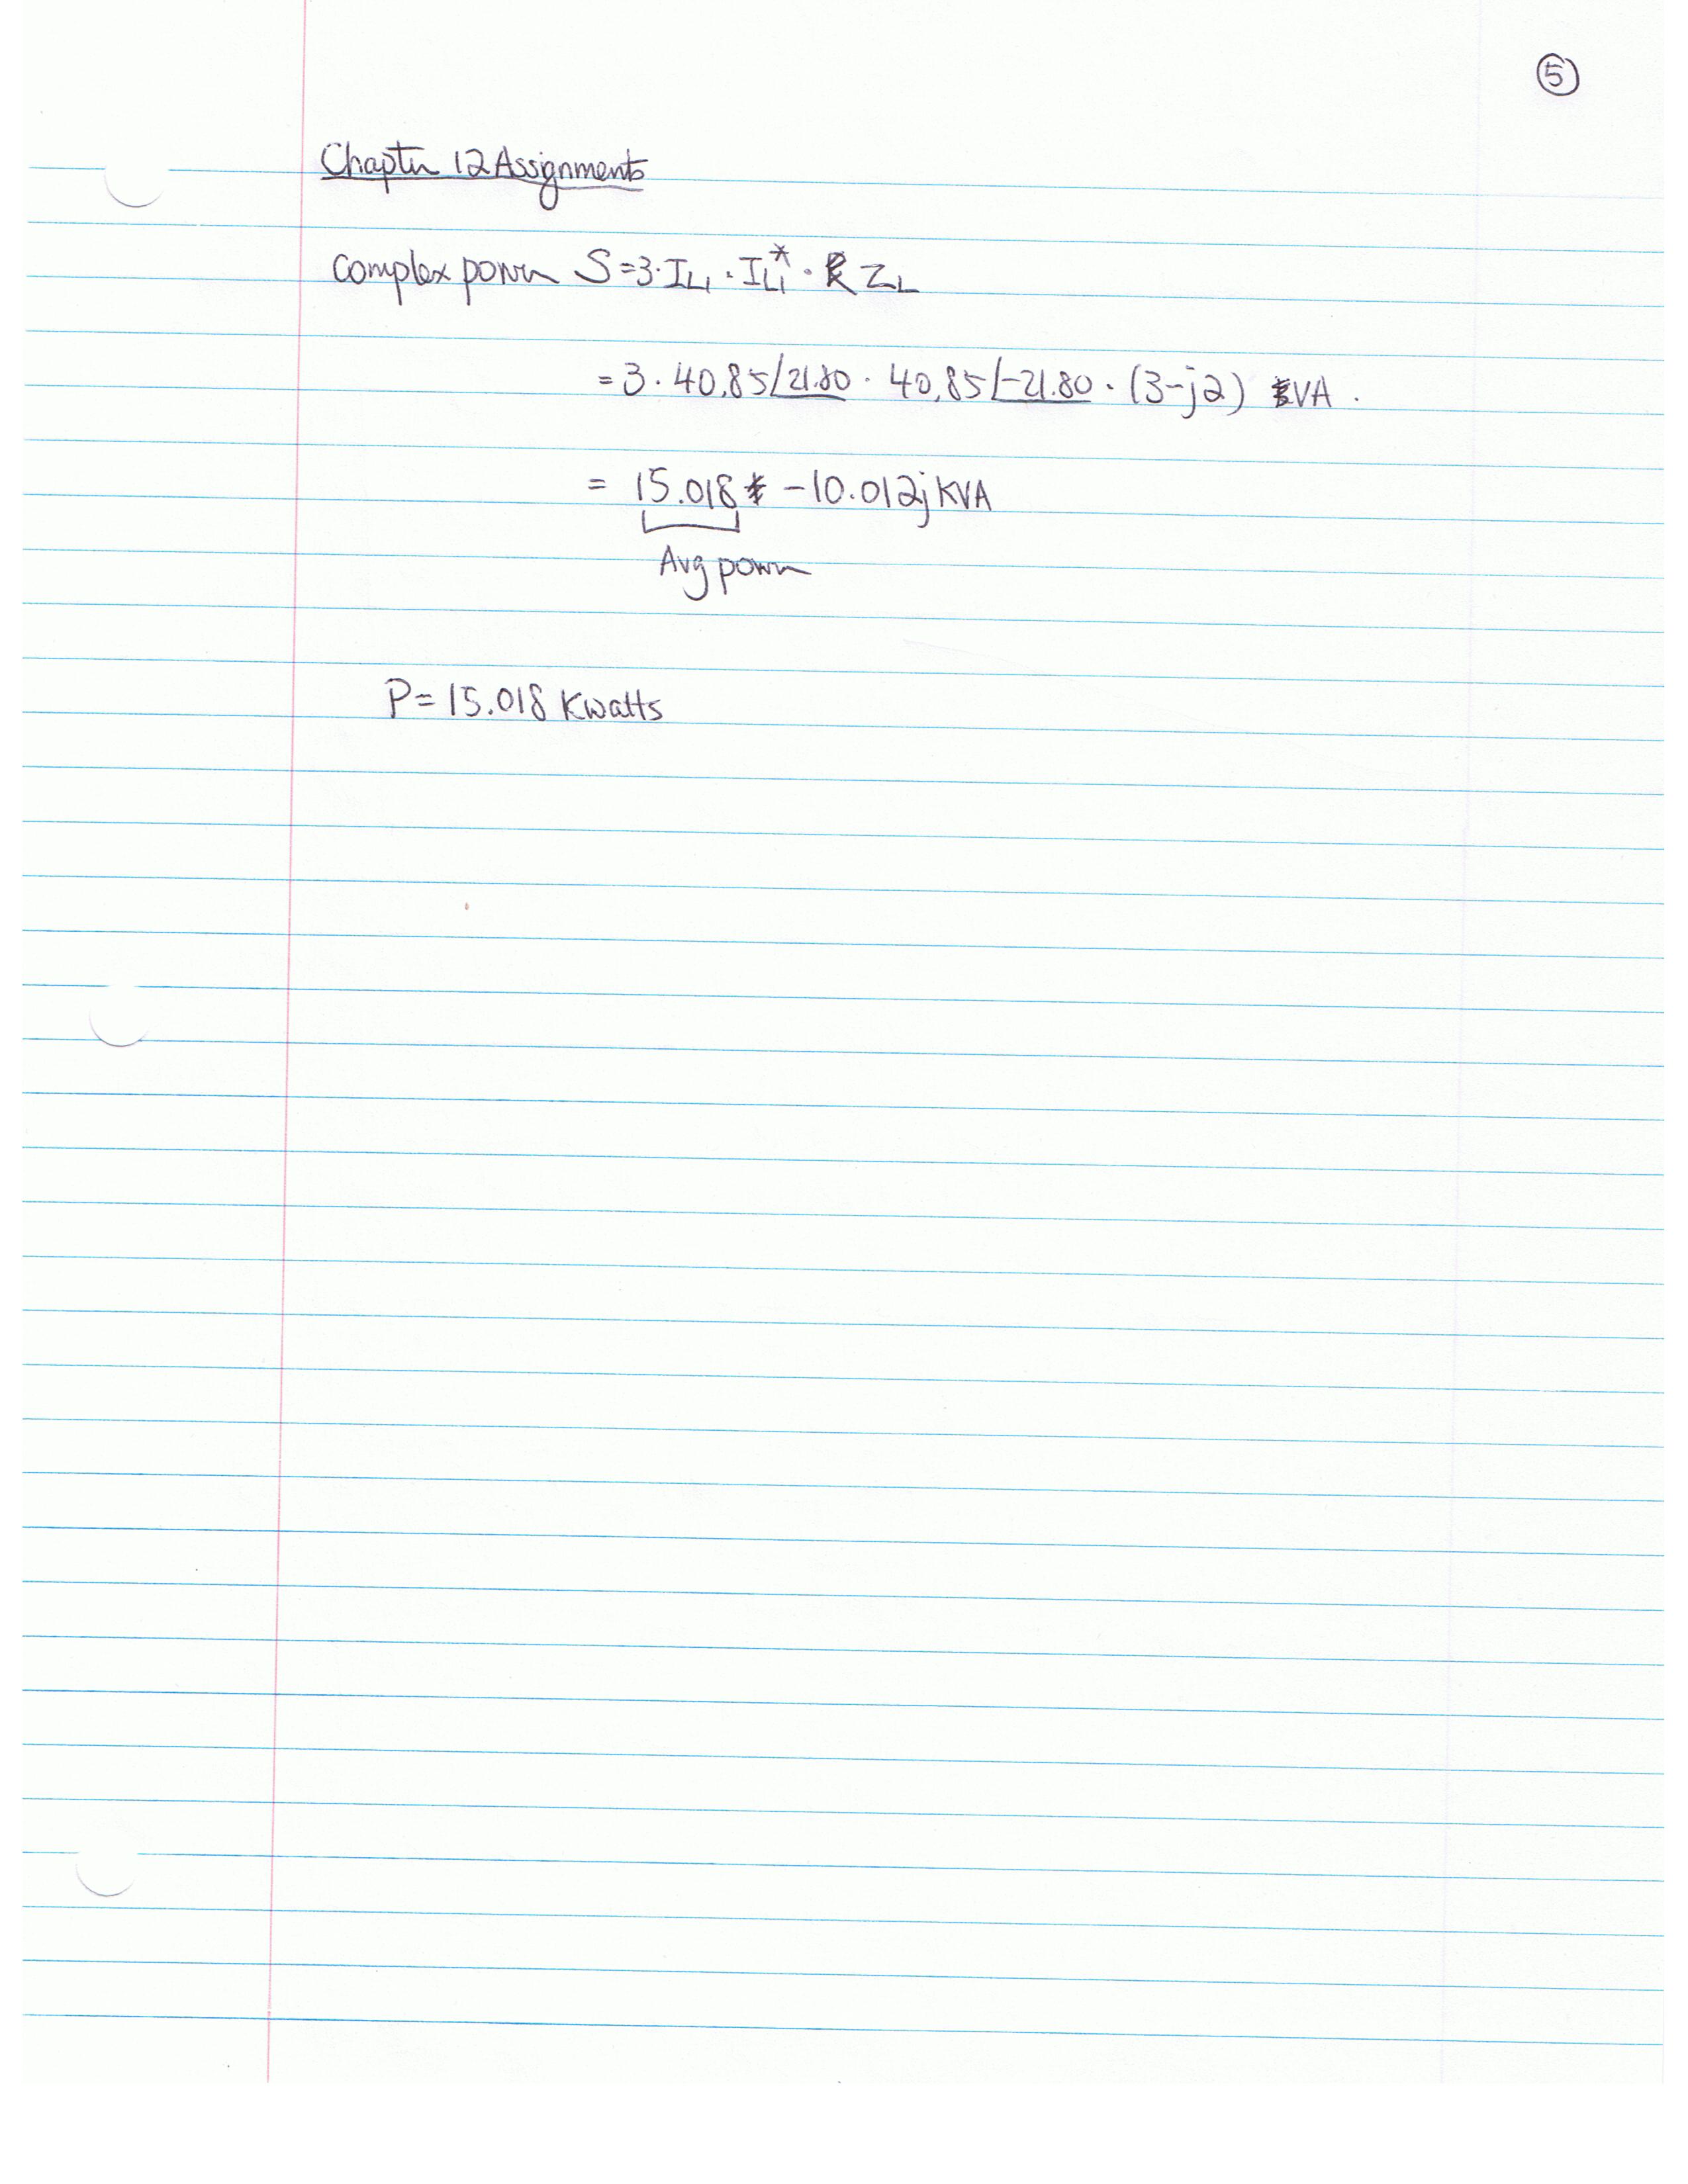 5
Chapter 12 Assignments
Complex power S = 3·I_L1 · I_L1^* · Z_L
= 3 · 40.85∠21.80 · 40.85∠-21.80 · (3-j2) VA.
= 15.018 - 10.012j KVA
Avg power
P = 15.018 Kwatts